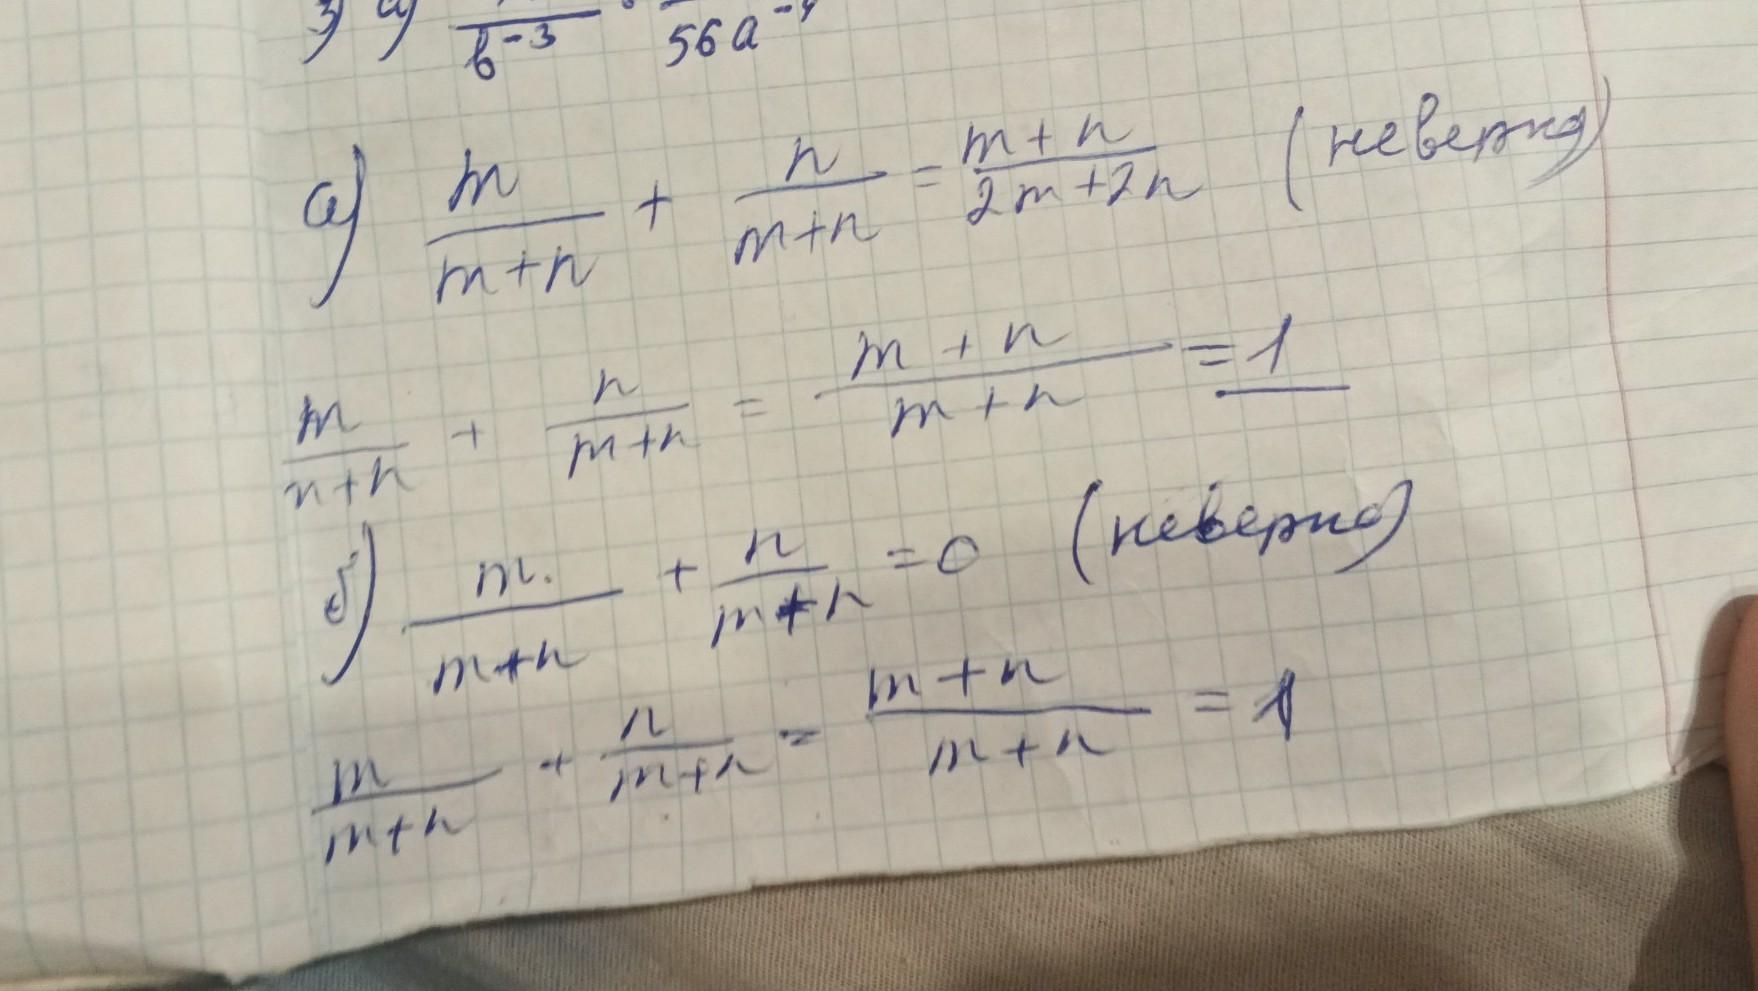 3) а) /b⁻³ : /56a⁻⁴
а) m/(m+n) + n/(m+n) = (m+n)/(2m+2n) (неверно)
m/(n+n) + n/(m+n) = (m+n)/(m+n) = 1
б) m/(m+n) + n/(m+n) = 0 (неверно)
m/(m+n) + n/(m+n) = (m+n)/(m+n) = 1